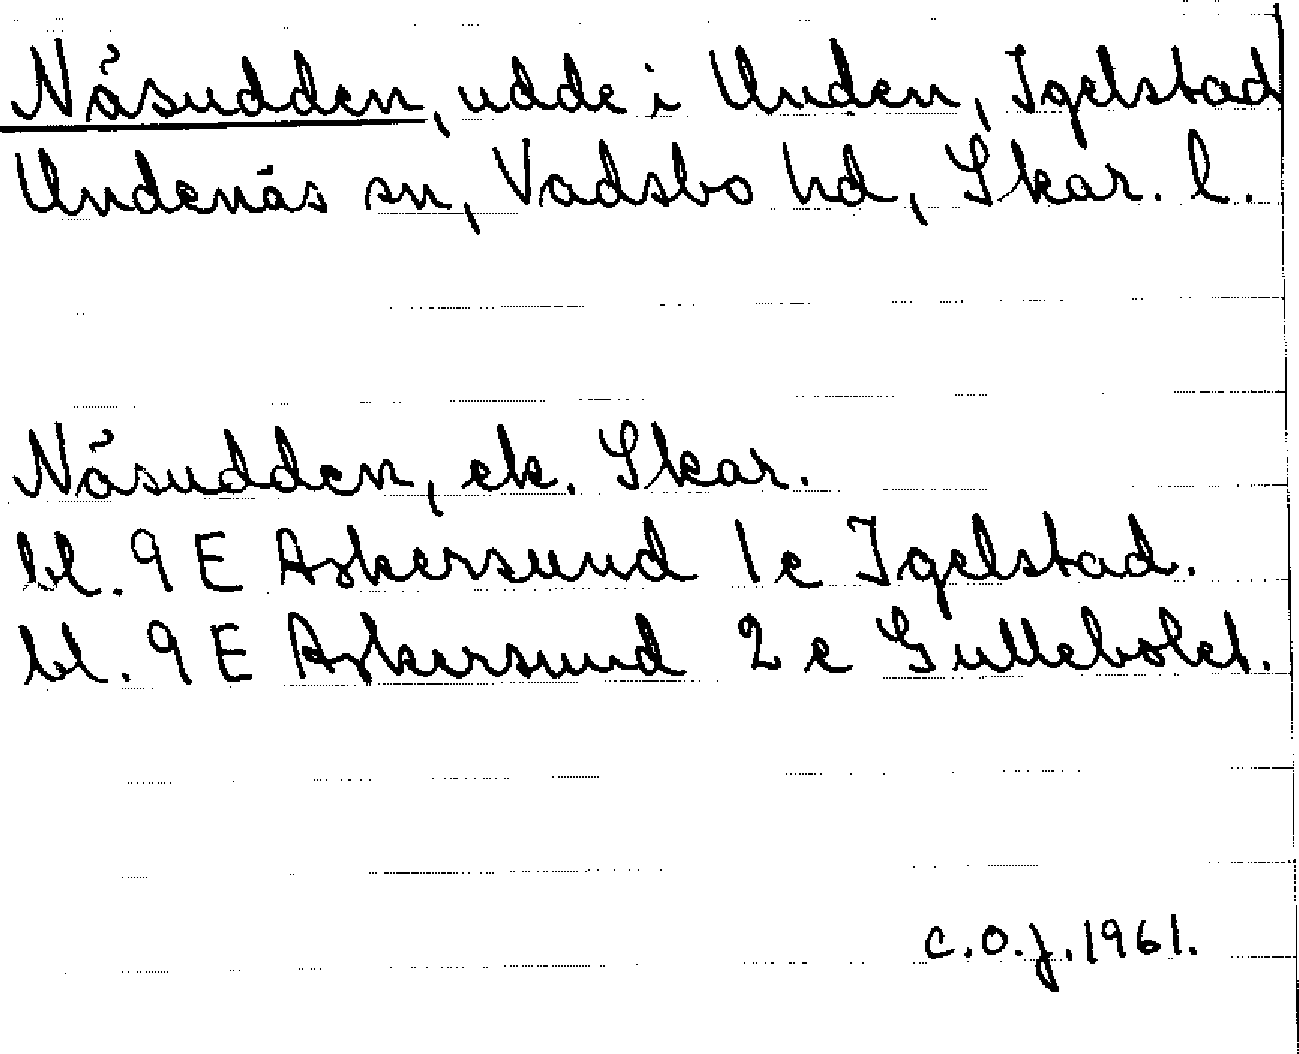 Näsudden, udde i Unden, Igelstad
Undenäs sn, Vadsbo hd, Skar. l.
Näsudden, ek. Skar.
bl. 9 E Askersund 1c Igelstad.
bl. 9 E Askersund 2c Gullebolet.
C.O.J. 1961.